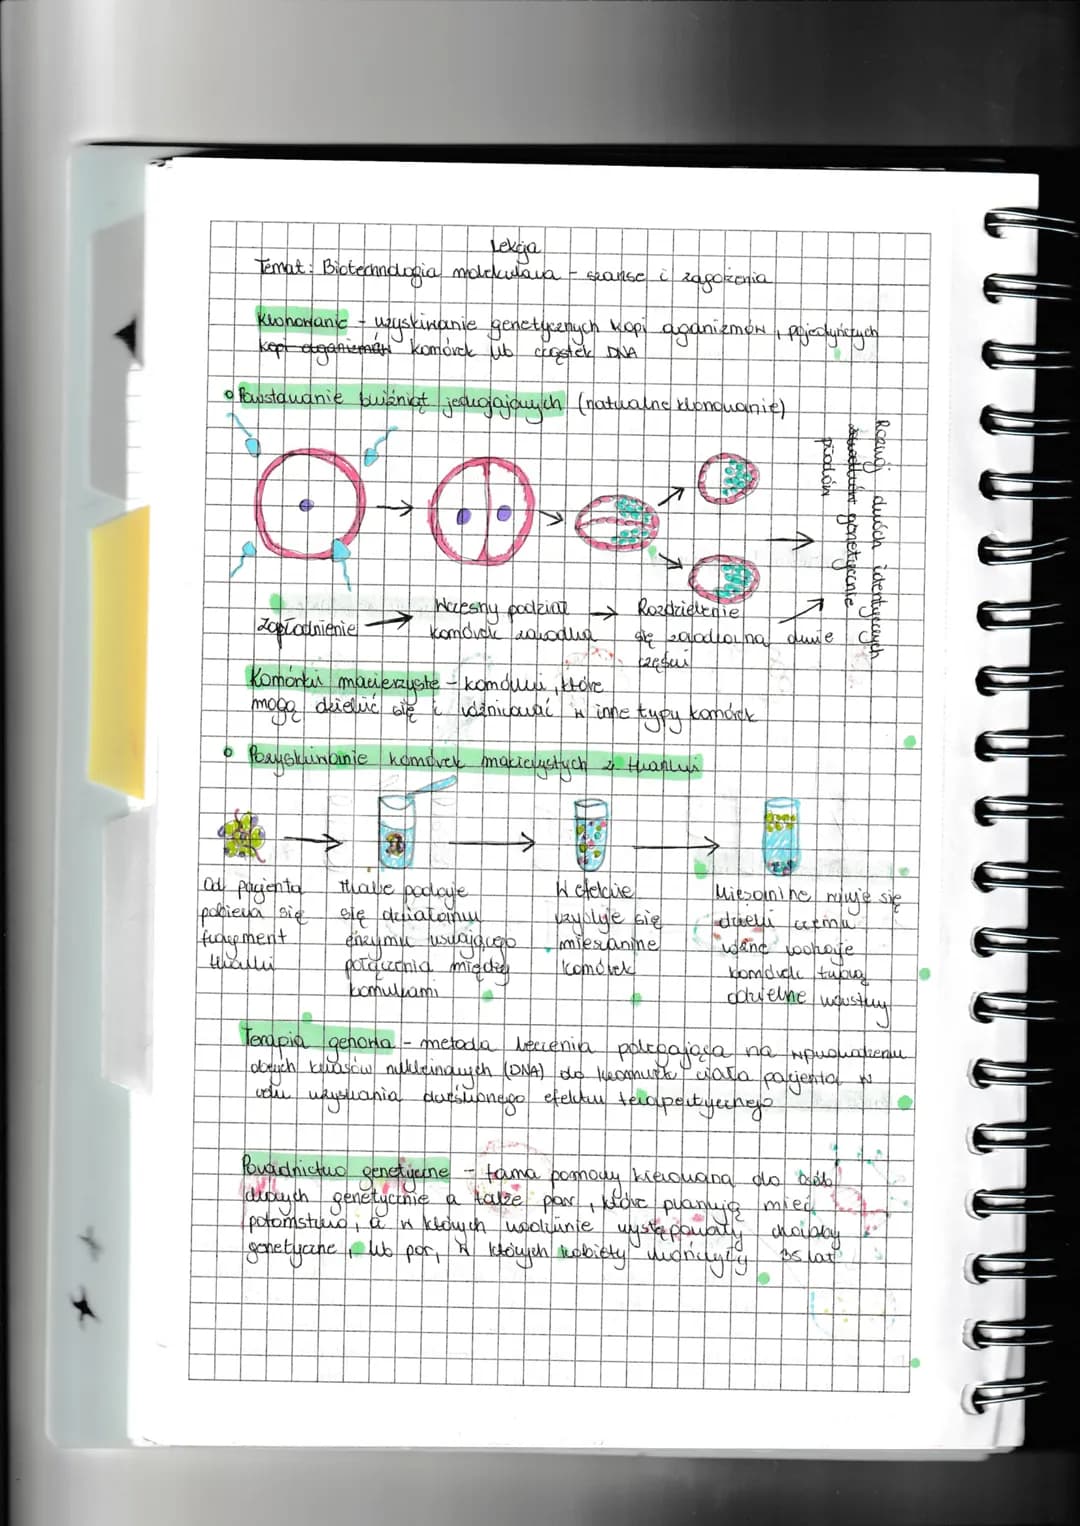 Lekcja
Temat: Biotechnologia molekularna - szanse i zagożenia
Klonowanie - uzyskiwanie genetycznych kopi organizmów, pojedyńczych
kopi organizmów komórek lub cząstek DNA
Powstawanie bliźniąt jednojajowych (naturalne klonowanie)
Rozwój dwóch identycznych
genetycznie
płodów
Zapłodnienie
Wczesny podział
komórek zarodka
Rozdzielenie
się zarodka na dwie
części
Komórki macierzyste - komórki, które
mogą dzielić się i różnicować w inne typy komórek
Pozyskiwanie komórek macierzystych z tkanki
Od pacjenta
pobiera się
fragment
tkanki
tkankę podaje
się działaniu
enzymu usuwającego
połączenia między
komurkami
W efekcie
uzyskuje się
mieszanine
komórek
Mieszanine wiruje się
dzieki czemu
różne rodzaje
komórek tworzą
oddzielne warstwy
Terapia genowa - metoda leczenia polegająca na wprowadzeniu
obcych kwasów nukleinowych (DNA) do komurki ciała pacjenta w
celu uzyskania określonego efektu terapeutycznego
Poradnictwo genetyczne - forma pomocy kierowana do osób
chorych genetycznie a także par, które planują mieć
potomstwo, a w których rodzinie występowały choroby
genetyczne, lub par, w których kobiety ukończyły 35 lat